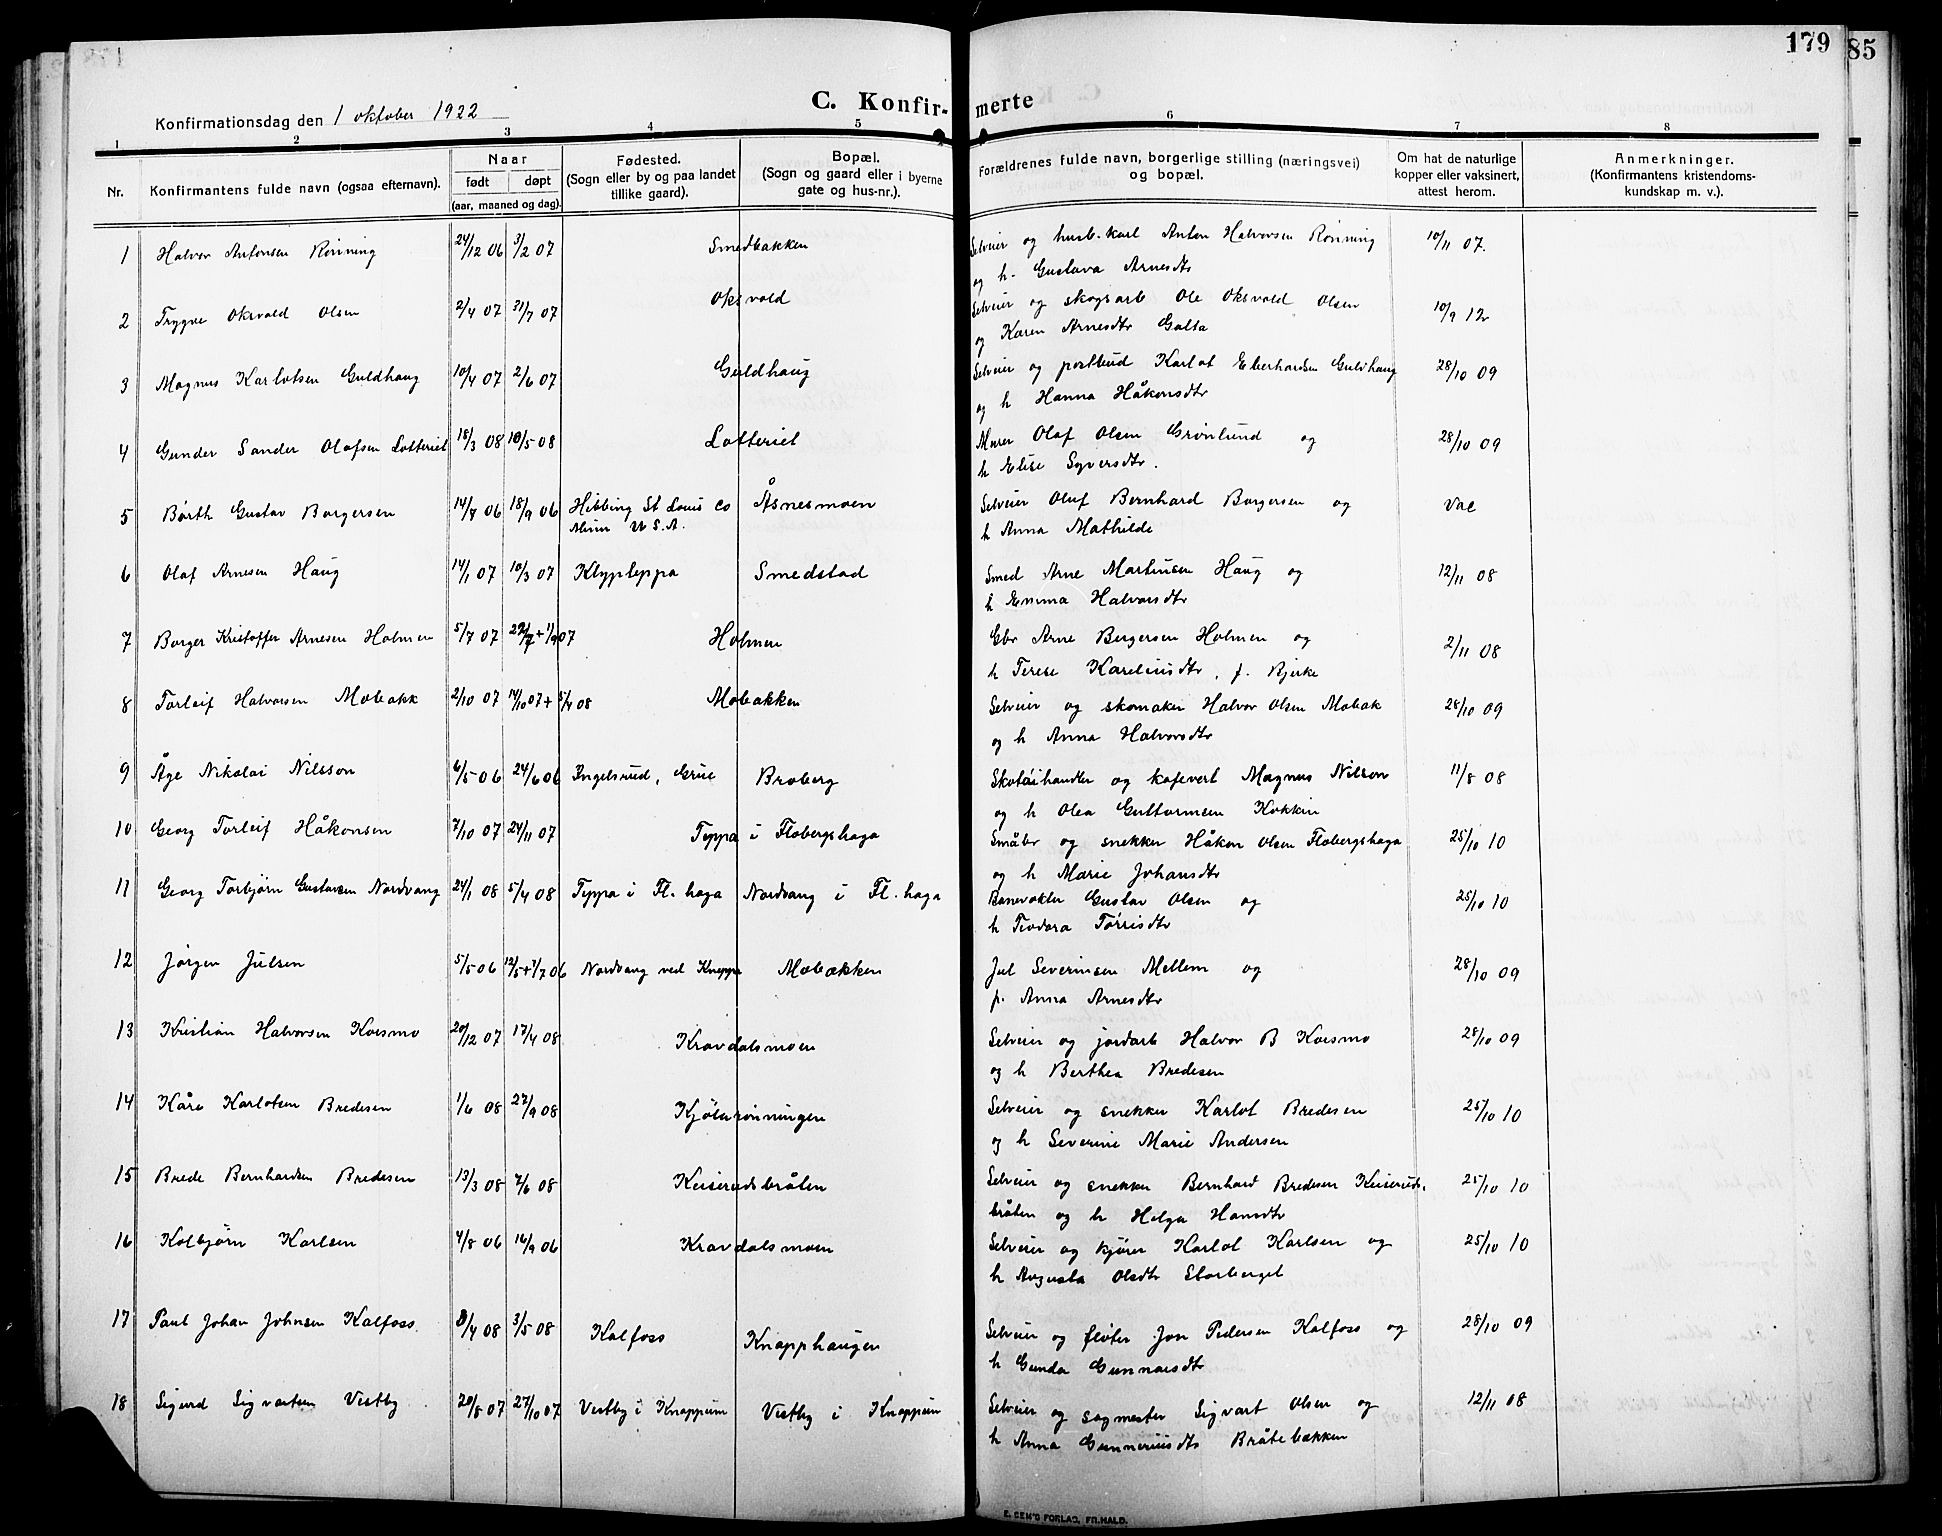 179
85
C. Konfir- merte
Konfirmationsdag den 1 oktober 1922
1 2 3 4 5 6 7 8
Nr. Konfirmantens fulde navn (ogsaa efternavn). Naar født døpt (aar, maaned og dag). Fødested. (Sogn eller by og paa landet tillike gaard). Bopæl. (Sogn og gaard eller i byerne gate og hus-nr.). Forældrenes fulde navn, borgerlige stilling (næringsvei) og bopæl. Om hat de naturlige kopper eller vaksinert, attest herom. Anmerkninger. (Konfirmantens kristendomskundskap m. v.).
1 Halvor Antonsen Rønning 24/12 06 3/2 07 Smedbakken Selveier og husb.karl Anton Halvorsen Rønning 10/11 07.
og h. Gustava Arnesdtr
2 Trygve Oksvold Olsen 2/4 07 31/7 07 Oksvold Selveier og skogsarb Ole Oksvold Olsen 10/9 12
og Karen Arnesdtr Galta
3 Magnus Karlotsen Guldhaug 10/4 07 2/6 07 Guldhaug Selveier og postbud Karlot Eberhardsen Guldhaug 28/10 09
og h Hanna Håkonsdtr
4 Gunder Sander Olafsen Lotteriet 18/3 08 10/5 08 Lotteriet Murer Olaf Olsen Grønlund og 28/10 09
h Elise Syversdtr.
5 Børth Gustav Borgersen 14/7 06 18/9 06 Hibbing St Louis Co Åsnesmoen Selveier Oluf Bernhard Borgersen og Vac
U.S.A. h Anna Mathilde
6 Olaf Arnesen Haug 14/1 07 10/3 07 Klypleppa Smedstad Smed Arne Martinsen Haug og 12/11 08
h Emma Halvorsdtr
7 Borger Kristoffer Arnesen Holmen 5/7 07 22/7 + 1/9 07 Holmen Gbr Arne Bergersen Holmen og 2/11 08
h Terese Kareliusdtr, f. Bjerke
8 Torleif Halvorsen Mobakk 2/10 07 14/10 07 + 5/4 08 Mobakken Selveier og skomaker Halvor Olsen Mobak 28/10 09
og h Anna Halvorsdtr
9 Åge Nikolai Nilsson 6/5 06 24/6 06 Ingelsrud, Grue Broberg Skotøihandler og kafevert Magnus Nilson 11/8 08
og h Olea Guttormsen Kokkin
10 Georg Torleif Håkonsen 7/10 07 24/11 07 Teppa i Flobergshaga Småbr og snekker Håkon Olsen Flobergshaga 25/10 10
og h Marie Johansdtr
11 Georg Torbjørn Gustavsen Nordvang 24/1 08 5/4 08 Teppa i Fl. haga Nordvang i Fl. haga Banevokter Gustav Olsen og 25/10 10
h Teodora Tørrisdtr
12 Jørgen Julsen 5/5 06 12/5 + 1/7 06 Nordvang ved Kneppe Mobakken Jul Severinsen Mellem og 28/10 09
p. Anna Arnesdtr
13 Kristian Halvorsen Korsmo 20/12 07 17/4 08 Kravdalsmoen Selveier og jordarb Halvor B Korsmo 28/10 09
og h Berthea Bredesen
14 Kåre Karlotsen Bredesen 1/6 08 27/9 08 Kjølarønningen Selveier og snekker Karlot Bredesen 25/10 10
og h Severine Marie Andersen
15 Brede Bernhardsen Bredesen 13/3 08 7/6 08 Keiserudsbråten Selveier og snekker Bernhard Bredesen Keiseruds- 25/10 10
bråten og h Helga Hansdtr
16 Kolbjørn Karlsen 4/8 06 16/9 06 Kravdalsmoen Selveier og kjører Karlot Karlsen og 25/10 10
h Augusta Olsdtr Storberget
17 Paul Johan Johnsen Kalfoss. 3/4 08 3/5 08 Kalfoss Knapphaugen Selveier og fløter Jon Pedersen Kalfoss og 28/10 09
h Gunda Gunnarsdtr
18 Sigurd Sigvartsen Vestby 20/8 07 27/10 07 Vestby i Knappum Vestby i Knappum Selveier og sagmester Sigvart Olsen og 12/11 08
h Anna Gunneriusdtr Bråtebakken
E. SEM'S FORLAG, FR.HALD.